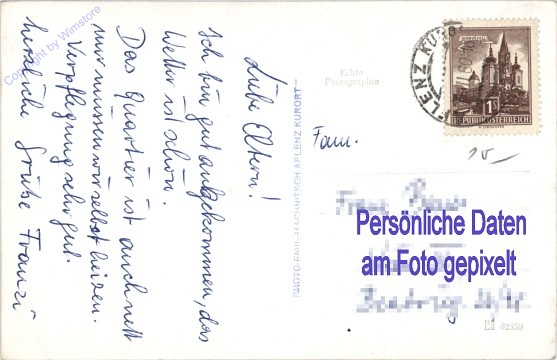 Liebe Eltern!
Ich bin gut angekommen, das
Wetter ist schön.
Das Quartier ist auch nett
nur müssen wir selbst heizen.
Verpflegung sehr gut.
herzliche Grüße Franzi
Copyright by Wimstore
PHOTO-EMIL MACHNITSCH AFLENZ KURORT
Echte
Photographie
FLENZ KURO
1S
REPUBLIK ÖSTERREICH
Fam.
10-
Persönliche Daten
am Foto gepixelt
62459